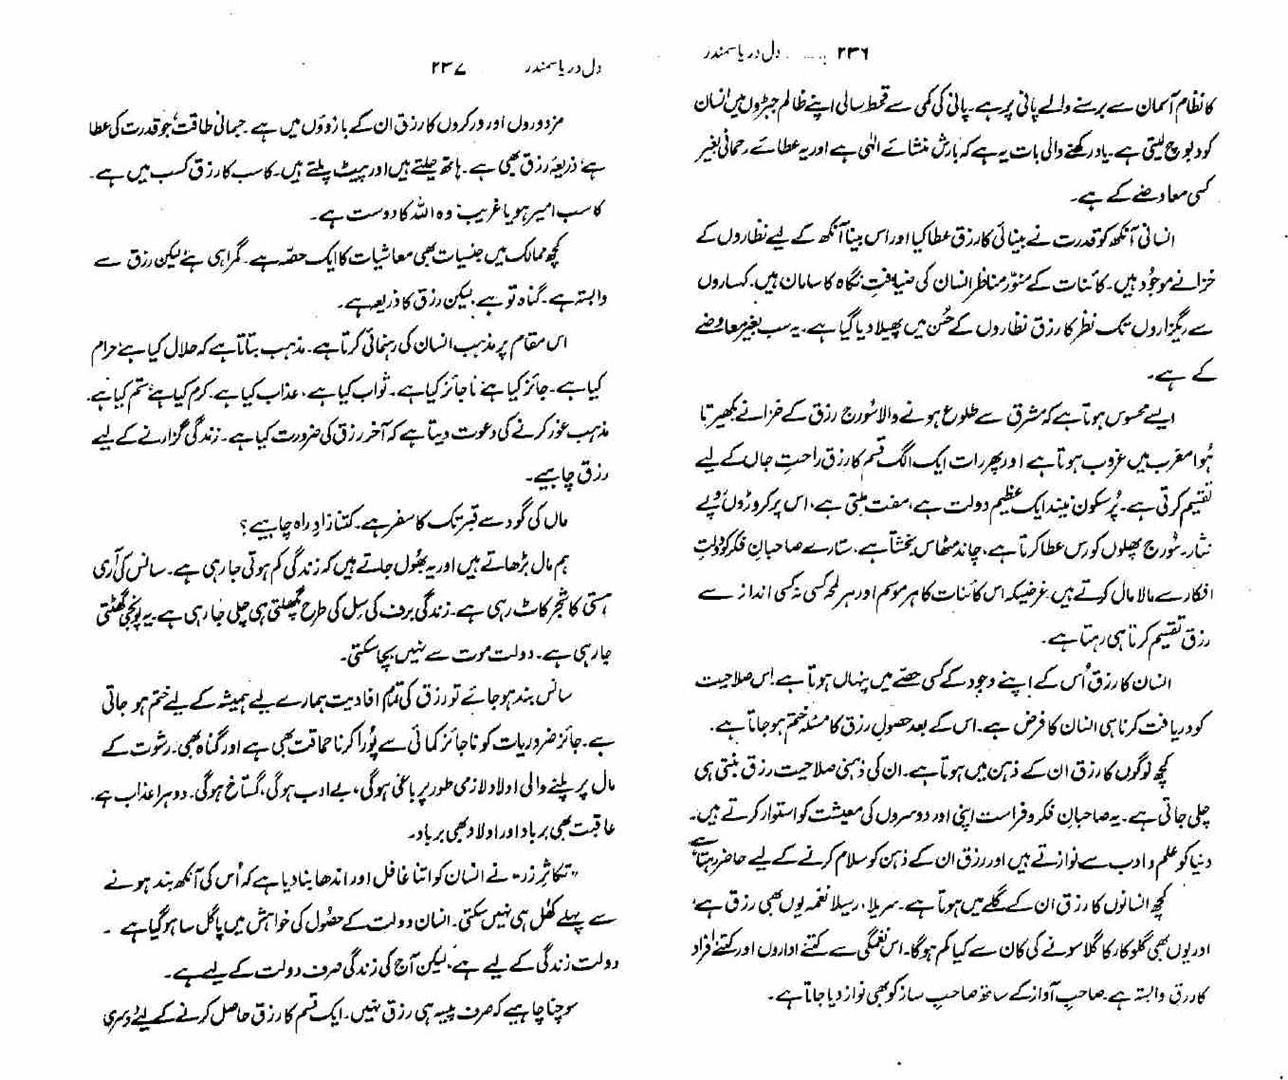 ۲۳۶ دل دریا سمندر
کا نظام آسمان سے برسنے والے پانی پر ہے۔ پانی کی کمی سے قحط سالی اپنے ظالم جبڑوں میں انسان
کو دبوچ لیتی ہے۔ یاد رکھنے والی بات یہ ہے کہ بارش منشائے الٰہی ہے اور یہ عطائے رحمانی بغیر
کسی معاوضے کے ہے۔
انسانی آنکھ کو قدرت نے بینائی کا رزق عطا کیا اور اس بینا آنکھ کے لیے نظاروں کے
خزانے موجُود ہیں۔ کائنات کے منوّر مناظر انسان کی ضیافتِ نگاہ کا سامان ہیں۔ کہساروں
سے ریگزاروں تک نظر کا رزق نظاروں کے حُسن میں پھیلا دیا گیا ہے۔ یہ سب بغیر معاوضے
کے ہے۔
ایسے محسوس ہوتا ہے کہ مشرق سے طلوع ہونے والا سُورج رزق کے خزانے بکھیرتا
ہُوا مغرب میں غروب ہوتا ہے اور پھر رات ایک الگ قسم کا رزق راحتِ جاں کے لیے
تقسیم کرتی ہے۔ پُرسکون نیند ایک عظیم دولت ہے، مفت ملتی ہے، اس پر کروڑوں روپے
نثار۔ سُورج پھلوں کو رس عطا کرتا ہے، چاند مٹھاس بخشتا ہے، ستارے صاحبانِ فکر کو دولتِ
افکار سے مالا مال کرتے ہیں۔ غرضیکہ اس کائنات کا ہر موسم اور ہر لمحہ کسی نہ کسی انداز سے
رزق تقسیم کرتا ہی رہتا ہے۔
انسان کا رزق اُس کے اپنے وجود کے کسی حصّے میں پنہاں ہوتا ہے۔ اس صلاحیت
کو دریافت کرنا ہی انسان کا فرض ہے۔ اس کے بعد حصولِ رزق کا مسئلہ ختم ہو جاتا ہے۔
کچھ لوگوں کا رزق ان کے ذہن میں ہوتا ہے۔ ان کی ذہنی صلاحیت رزق بنتی ہی
چلی جاتی ہے۔ یہ صاحبانِ فکر و فراست اپنی اور دوسروں کی معیشت کو استوار کرتے ہیں۔
دنیا کو علم و ادب سے نوازتے ہیں اور رزق ان کے ذہن کو سلام کرنے کے لیے حاضر رہتا ہے
کچھ انسانوں کا رزق ان کے گلے میں ہوتا ہے۔ سریلا، رسیلا نغمہ یوں بھی رزق ہے،
اور یوں بھی گلوکار کا گلا سونے کی کان سے کیا کم ہوگا۔ اس نغمگی سے کتنے اداروں اور کتنے افراد
کا رزق وابستہ ہے۔ صاحبِ آواز کے ساتھ صاحبِ ساز کو بھی نواز دیا جاتا ہے۔
دل دریا سمندر ۲۳۷
مزدوروں اور ورکروں کا رزق ان کے بازوؤں میں ہے۔ جسمانی طاقت، جو قدرت کی عطا
ہے، ذریعۂ رزق بھی ہے۔ ہاتھ چلتے ہیں اور پیٹ پلتے ہیں۔ کاسب کا رزق کسب میں ہے۔
کاسب امیر ہو یا غریب، وہ اللہ کا دوست ہے۔
کچھ ممالک میں جنسیات بھی معاشیات کا ایک حصّہ ہے۔ گمراہی ہے، لیکن رزق سے
وابستہ ہے۔ گناہ تو ہے، لیکن رزق کا ذریعہ ہے۔
اس مقام پر مذہب انسان کی رہنمائی کرتا ہے۔ مذہب بتاتا ہے کہ حلال کیا ہے، حرام
کیا ہے۔ جائز کیا ہے، ناجائز کیا ہے۔ ثواب کیا ہے، عذاب کیا ہے۔ کرم کیا ہے، ستم کیا ہے۔
مذہب غور کرنے کی دعوت دیتا ہے کہ آخر رزق کی ضرورت کیا ہے۔ زندگی گزارنے کے لیے
رزق چاہیے۔
ماں کی گود سے قبر تک کا سفر ہے۔ کتنا زادِ راہ چاہیے؟
ہم مال بڑھاتے ہیں اور یہ بھُول جاتے ہیں کہ زندگی کم ہوتی جا رہی ہے۔ سانس کی آری
ہستی کا شجر کاٹ رہی ہے۔ زندگی برف کی سِل کی طرح پگھلتی ہی چلی جا رہی ہے۔ یہ پُونجی گھٹتی
جا رہی ہے۔ دولت موت سے نہیں بچا سکتی۔
سانس بند ہو جائے تو رزق کی تمام افادیت ہمارے لیے ہمیشہ کے لیے ختم ہو جاتی
ہے۔ جائز ضروریات کو ناجائز کمائی سے پُورا کرنا حماقت بھی ہے اور گناہ بھی۔ رشوت کے
مال پر پلنے والی اولاد لازمی طور پر باغی ہوگی، بے ادب ہوگی، گستاخ ہوگی۔ دوہرا عذاب ہے۔
عاقبت بھی برباد اور اولاد بھی برباد۔
"تکاثرِ زر" نے انسان کو اتنا غافل اور اندھا بنا دیا ہے کہ اُس کی آنکھ بند ہونے
سے پہلے کھُل ہی نہیں سکتی۔ انسان دولت کے حصُول کی خواہش میں پاگل سا ہو گیا ہے۔
دولت زندگی کے لیے ہے، لیکن آج کی زندگی صرف دولت کے لیے ہے۔
سوچنا چاہیے کہ صرف پیسہ ہی رزق نہیں۔ ایک قسم کا رزق حاصل کرنے کے لیے دوسری